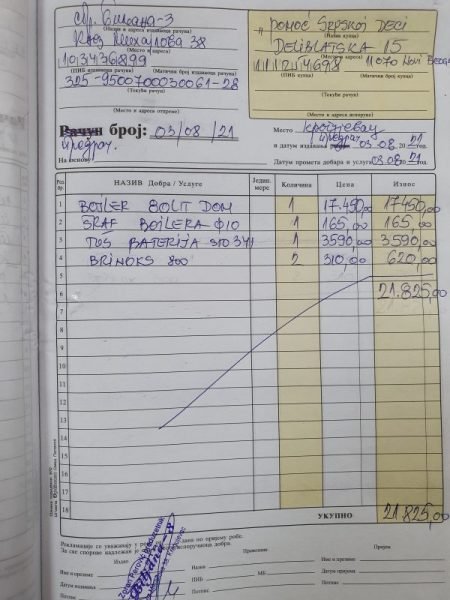 Кнез Михајлова 38
(Место и адреса)
103436899
(ПИБ издаваоца рачуна) (Матични број издаваоца рачуна)
325-9500700030061-28
(Текући рачун)
(Место и адреса отпреме)
"POMOĆ SRPSKOJ DECI
(Назив купца)
DELIBLATSKA 15
(Место и адреса купца)
111254698 11070 Novi Beograd
(ПИБ купца) (Матични број купца)
(Текући рачун)
(Место и адреса испоруке)
Рачун број: 03/08/21
Предрач.
На основу
Место
и датум издавања рачуна 03.08 2021 год.
Датум промета добара и услуга 03.08 2021 год.
Ред. бр. НАЗИВ Добра / Услуге Једин. мере Количина Цена Износ
1 BOJLER BOLT DOM 1 17.450,00 17450,00
2 ŠRAF BOJLERA Φ10 1 165,00 165,00
3 TUŠ BATERIJA 1 3590,00 3590,00
4 BRINOKS 800 2 310,00 620,00
5
6 21.825,00
7
8
9
10
11
12
13
14
15
16
17
18
УКУПНО 21.825,00
Рекламације се уважавају у року од дана по пријему робе.
За све спорове надлежан је
Издао Примио
Име и презиме Назив Име и презиме
Датум издавања ПИБ МБ Датум пријема
Потпис Потпис